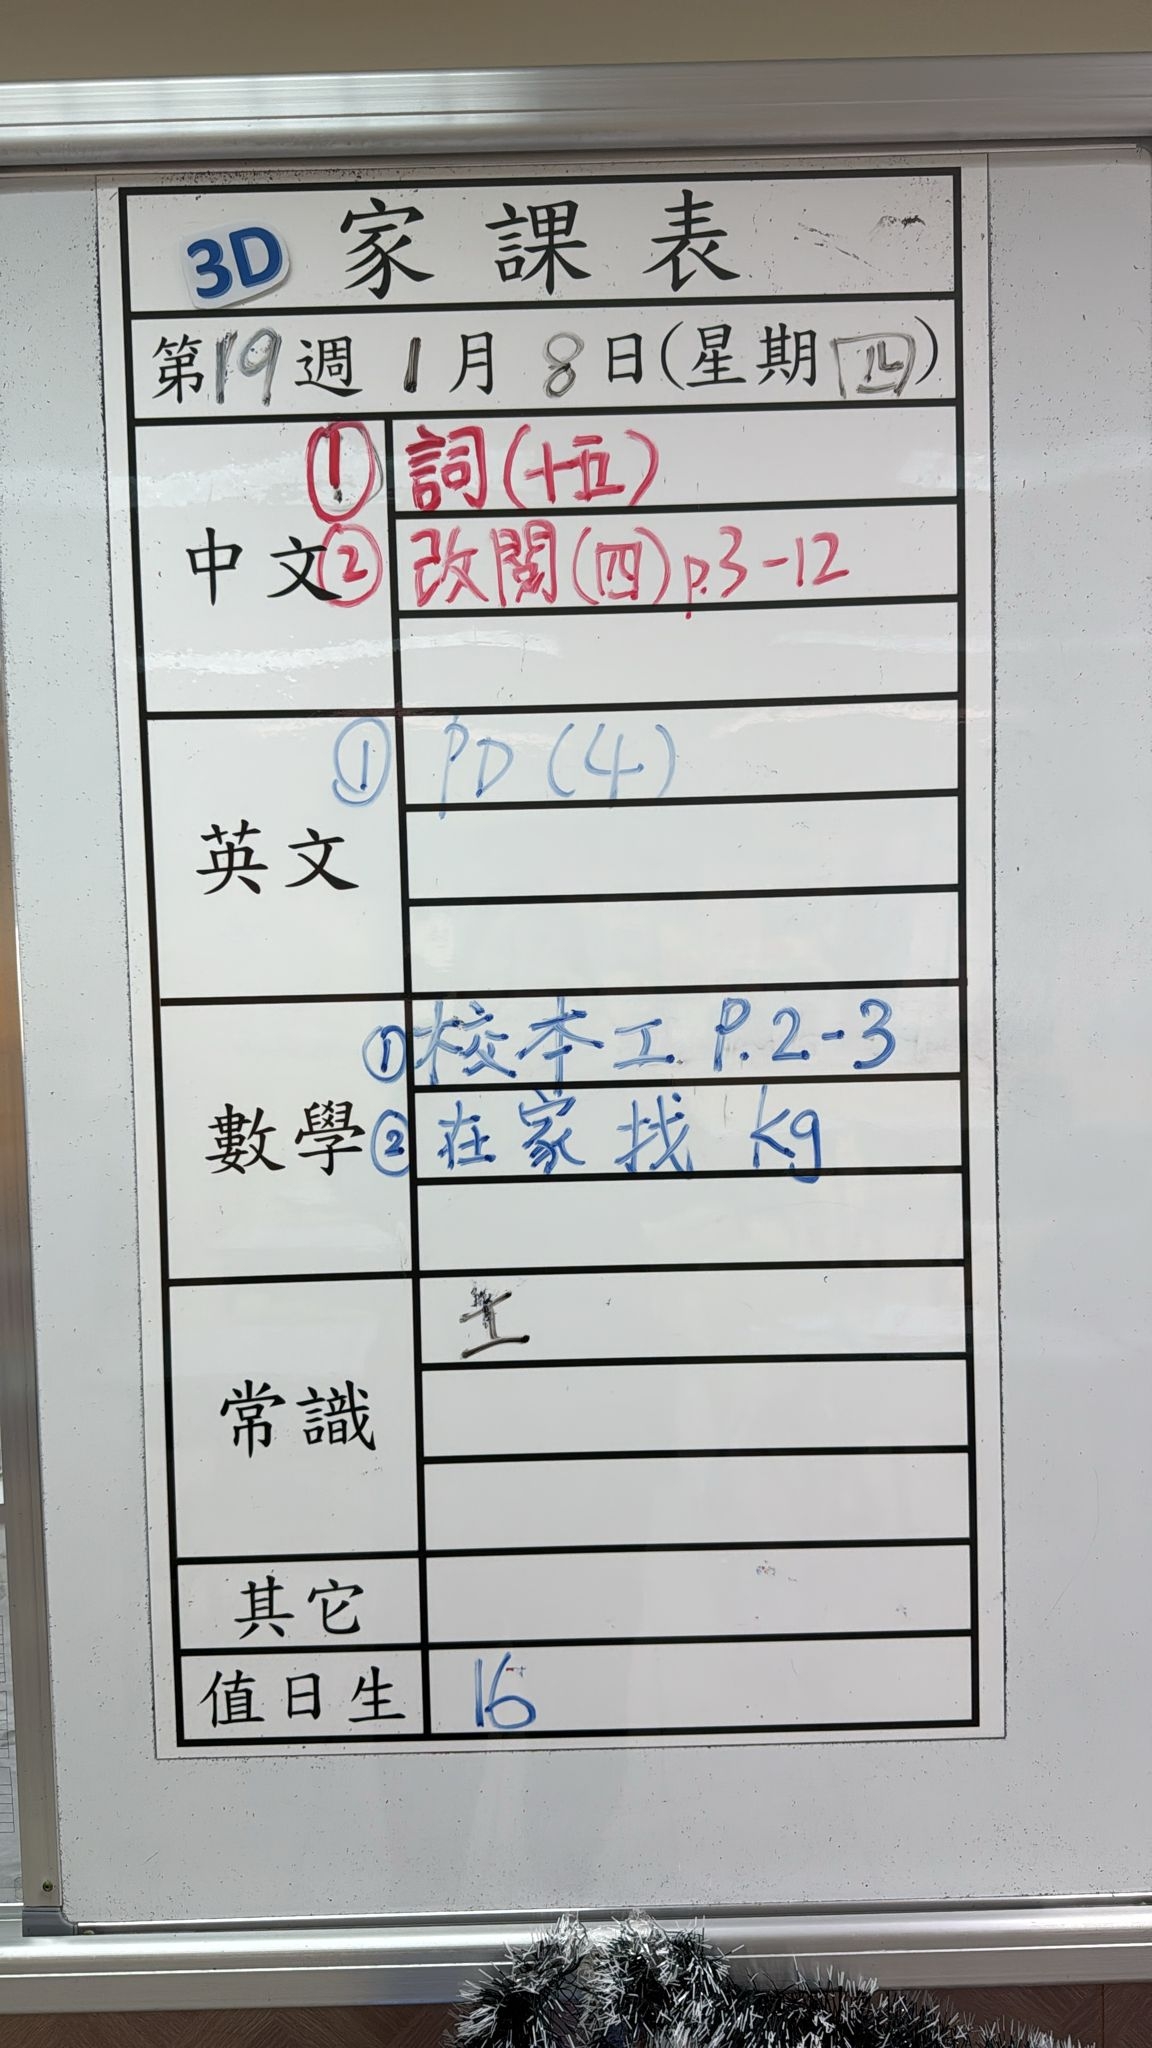 3D 家課表
第19週 1月 8日(星期四)
中文
① 詞(十五)
② 改閱(四)p.3-12
英文
① PD(4)
數學
① 校本工 P.2-3
② 在家找 kg
常識
其它
值日生 16